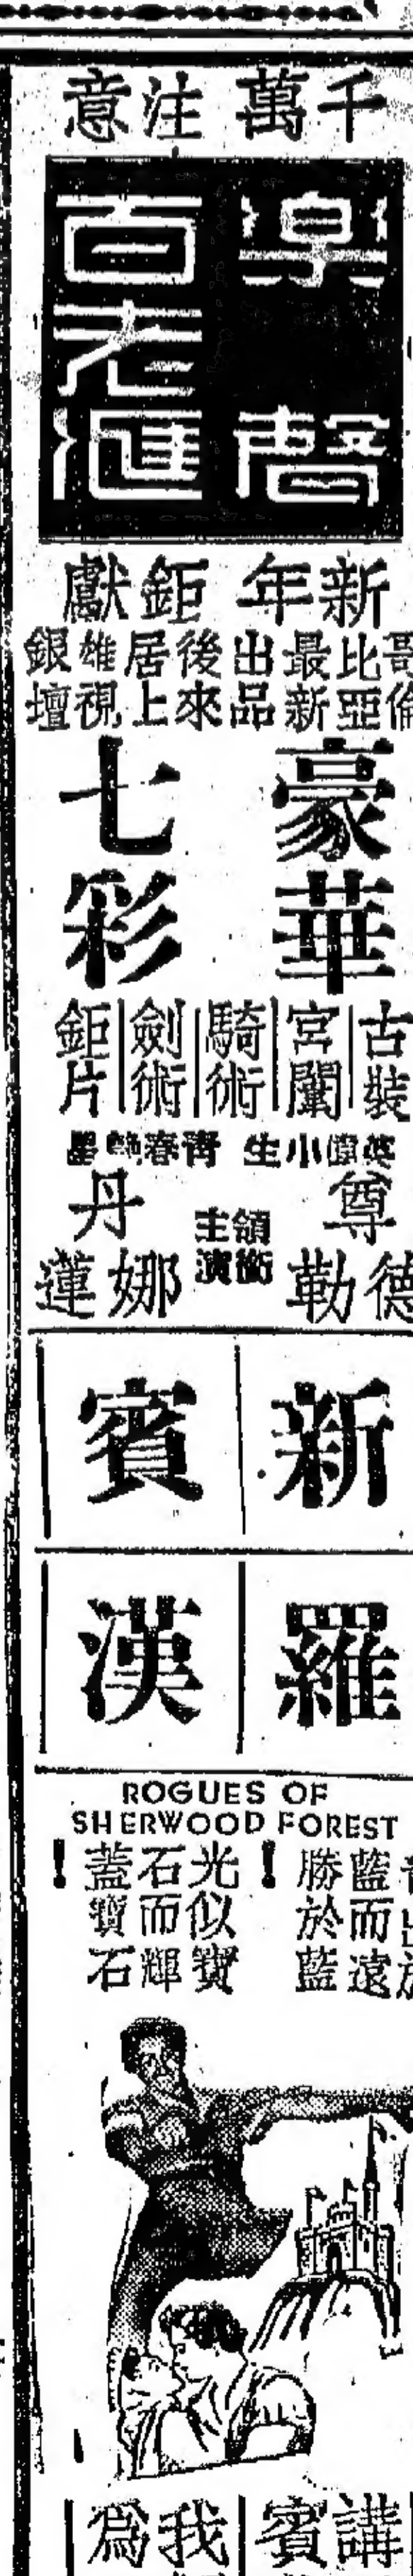 千萬注意
樂聲
百老匯
新年鉅獻
哥倫比亞最新出品後來居上雄視銀壇
豪華
七彩
古裝
宮闈
騎術
劍術
鉅片
英偉小生
尊德勒
領銜主演
青春艷星
丹娜蓮
新羅賓漢
ROGUES OF
SHERWOOD FOREST
青出於藍而遠勝於藍!
光似寶石而輝蓋寶石!
講
賓
我
為